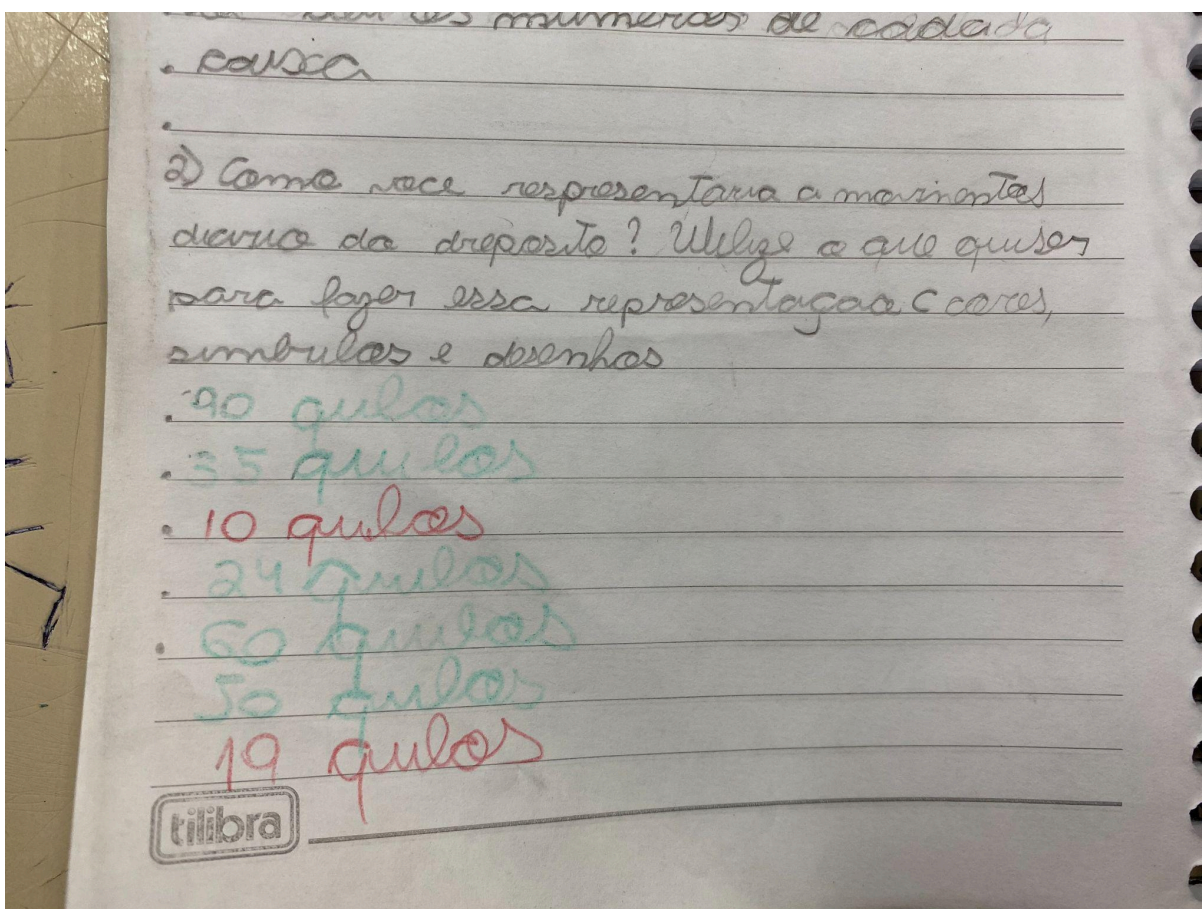 os numeros de cadada
. causca
.
2) Como voce respresentaria a movimentas
diarua do dreposito? Utilize o que quiser
para fazer essa representaçao ( cores,
simbulos e desenhos
. 90 quilos
. 35 quilos
. 10 quilos
. 24 quilos
. 60 quilos
50 quilos
19 quilos
tilibra